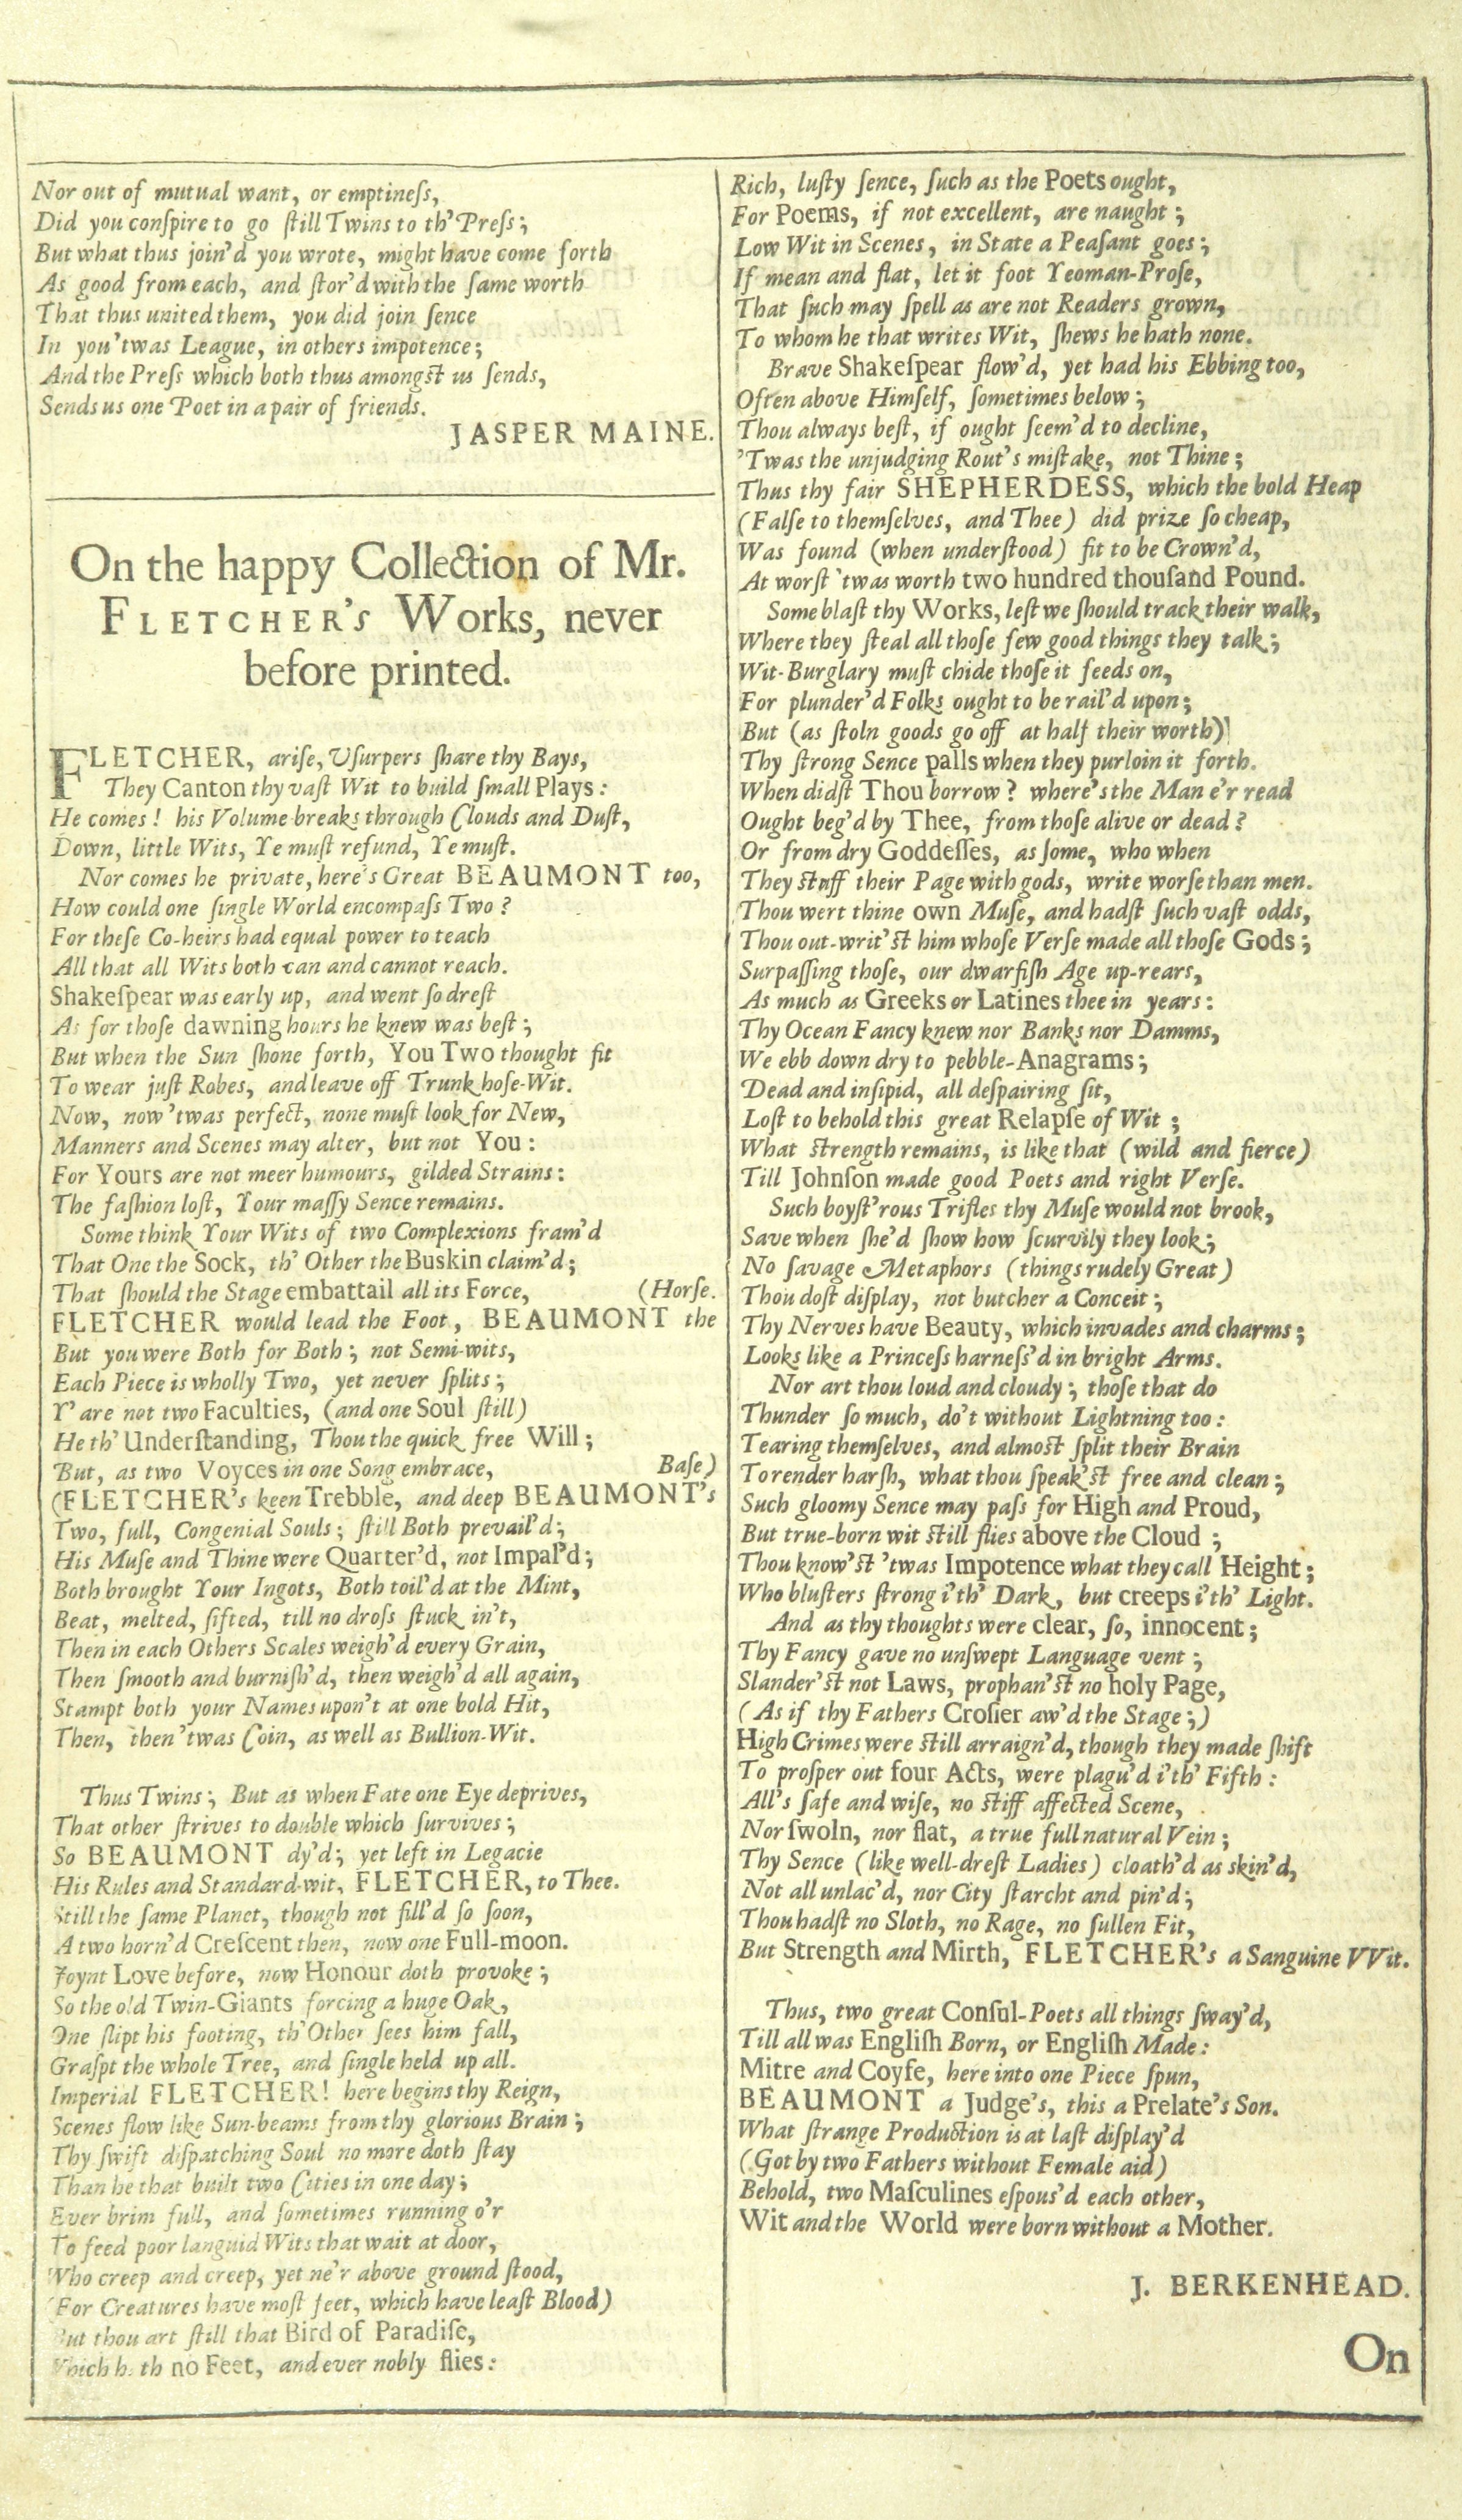 Nor out of mutual want, or emptineſs,
Did you conſpire to go ſtill Twins to th' Preſs;
But what thus join'd you wrote, might have come forth
As good from each, and ſtor'd with the ſame worth
That thus united them, you did join ſence
In you 'twas League, in others impotence;
And the Preſs which both thus amongſt us ſends,
Sends us one Poet in a pair of friends.
JASPER MAINE.
On the happy Collection of Mr.
FLETCHER'S Works, never
before printed.
FLETCHER, ariſe, Uſurpers ſhare thy Bays,
They Canton thy vaſt Wit to build ſmall Plays:
He comes! his Volume breaks through Clouds and Duſt,
Down, little Wits, Ye muſt refund, Ye muſt.
Nor comes he private, here's Great BEAUMONT too,
How could one ſingle World encompaſs Two?
For theſe Co-heirs had equal power to teach
All that all Wits both can and cannot reach.
Shakeſpear was early up, and went ſo dreſt
As for thoſe dawning hours he knew was beſt;
But when the Sun ſhone forth, You Two thought fit
To wear juſt Robes, and leave off Trunk hoſe-Wit.
Now, now 'twas perfect, none muſt look for New,
Manners and Scenes may alter, but not You:
For Yours are not meer humours, gilded Strains:
The faſhion loſt, Your maſſy Sence remains.
Some think Your Wits of two Complexions fram'd
That One the Sock, th' Other the Buskin claim'd;
That ſhould the Stage embattail all its Force, (Horſe.
FLETCHER would lead the Foot, BEAUMONT the
But you were Both for Both; not Semi-wits,
Each Piece is wholly Two, yet never ſplits;
Y' are not two Faculties, (and one Soul ſtill)
He th' Underſtanding, Thou the quick free Will;
But, as two Voyces in one Song embrace, Baſe)
(FLETCHER's keen Trebble, and deep BEAUMONT's
Two, full, Congenial Souls; ſtill Both prevail'd;
His Muſe and Thine were Quarter'd, not Impal'd;
Both brought Your Ingots, Both toil'd at the Mint,
Beat, melted, ſifted, till no droſs ſtuck in't,
Then in each Others Scales weigh'd every Grain,
Then ſmooth and burniſh'd, then weigh'd all again,
Stampt both your Names upon't at one bold Hit,
Then, then 'twas Coin, as well as Bullion-Wit.
Thus Twins; But as when Fate one Eye deprives,
That other ſtrives to double which ſurvives;
So BEAUMONT dy'd; yet left in Legacie
His Rules and Standard-wit, FLETCHER, to Thee.
Still the ſame Planet, though not fill'd ſo ſoon,
A two horn'd Creſcent then, now one Full-moon.
Joynt Love before, now Honour doth provoke;
So the old Twin-Giants forcing a huge Oak,
One ſlipt his footing, th' Other ſees him fall,
Graſpt the whole Tree, and ſingle held up all.
Imperial FLETCHER! here begins thy Reign,
Scenes flow like Sun-beams from thy glorious Brain;
Thy ſwift diſpatching Soul no more doth ſtay
Than he that built two Cities in one day;
Ever brim full, and ſometimes running o'r
To feed poor languid Wits that wait at door,
Who creep and creep, yet ne'r above ground ſtood,
(For Creatures have moſt feet, which have leaſt Blood)
But thou art ſtill that Bird of Paradiſe,
Which hath no Feet, and ever nobly flies:
Rich, luſty ſence, ſuch as the Poets ought,
For Poems, if not excellent, are naught;
Low Wit in Scenes, in State a Peaſant goes;
If mean and flat, let it foot Yeoman-Proſe,
That ſuch may ſpell as are not Readers grown,
To whom he that writes Wit, ſhews he hath none.
Brave Shakeſpear flow'd, yet had his Ebbing too,
Often above Himſelf, ſometimes below;
Thou always beſt, if ought ſeem'd to decline,
'Twas the unjudging Rout's miſtake, not Thine;
Thus thy fair SHEPHERDESS, which the bold Heap
(Falſe to themſelves, and Thee) did prize ſo cheap,
Was found (when underſtood) fit to be Crown'd,
At worſt 'twas worth two hundred thouſand Pound.
Some blaſt thy Works, leſt we ſhould track their walk,
Where they ſteal all thoſe few good things they talk;
Wit-Burglary muſt chide thoſe it feeds on,
For plunder'd Folks ought to be rail'd upon;
But (as ſtoln goods go off at half their worth)
Thy ſtrong Sence palls when they purloin it forth.
When didſt Thou borrow? where's the Man e'r read
Ought beg'd by Thee, from thoſe alive or dead?
Or from dry Goddeſſes, as ſome, who when
They ſtuff their Page with gods, write worſe than men.
Thou wert thine own Muſe, and hadſt ſuch vaſt odds,
Thou out-writ'ſt him whoſe Verſe made all thoſe Gods;
Surpaſſing thoſe, our dwarfiſh Age up-rears,
As much as Greeks or Latines thee in years:
Thy Ocean Fancy knew nor Banks nor Damms,
We ebb down dry to pebble-Anagrams;
Dead and inſipid, all deſpairing ſit,
Loſt to behold this great Relapſe of Wit;
What ſtrength remains, is like that (wild and fierce)
Till Johnſon made good Poets and right Verſe.
Such boyſt'rous Trifles thy Muſe would not brook,
Save when ſhe'd ſhow how ſcurvily they look;
No ſavage Metaphors (things rudely Great)
Thou doſt diſplay, not butcher a Conceit;
Thy Nerves have Beauty, which invades and charms;
Looks like a Princeſs harneſs'd in bright Arms.
Nor art thou loud and cloudy; thoſe that do
Thunder ſo much, do't without Lightning too:
Tearing themſelves, and almoſt ſplit their Brain
To render harſh, what thou ſpeak'ſt free and clean;
Such gloomy Sence may paſs for High and Proud,
But true-born wit ſtill flies above the Cloud;
Thou know'ſt 'twas Impotence what they call Height;
Who bluſters ſtrong i'th' Dark, but creeps i'th' Light.
And as thy thoughts were clear, ſo, innocent;
Thy Fancy gave no unſwept Language vent;
Slander'ſt not Laws, prophan'ſt no holy Page,
(As if thy Fathers Croſier aw'd the Stage;)
High Crimes were ſtill arraign'd, though they made ſhift
To proſper out four Acts, were plagu'd i'th' Fifth:
All's ſafe and wiſe, no ſtiff affected Scene,
Nor ſwoln, nor flat, a true full natural Vein;
Thy Sence (like well-dreſt Ladies) cloath'd as skin'd,
Not all unlac'd, nor City ſtarcht and pin'd;
Thou hadſt no Sloth, no Rage, no ſullen Fit,
But Strength and Mirth, FLETCHER's a Sanguine VVit.
Thus, two great Conſul-Poets all things ſway'd,
Till all was Engliſh Born, or Engliſh Made:
Mitre and Coyfe, here into one Piece ſpun,
BEAUMONT a Judge's, this a Prelate's Son.
What ſtrange Production is at laſt diſplay'd
(Got by two Fathers without Female aid)
Behold, two Maſculines eſpous'd each other,
Wit and the World were born without a Mother.
J. BERKENHEAD.
On